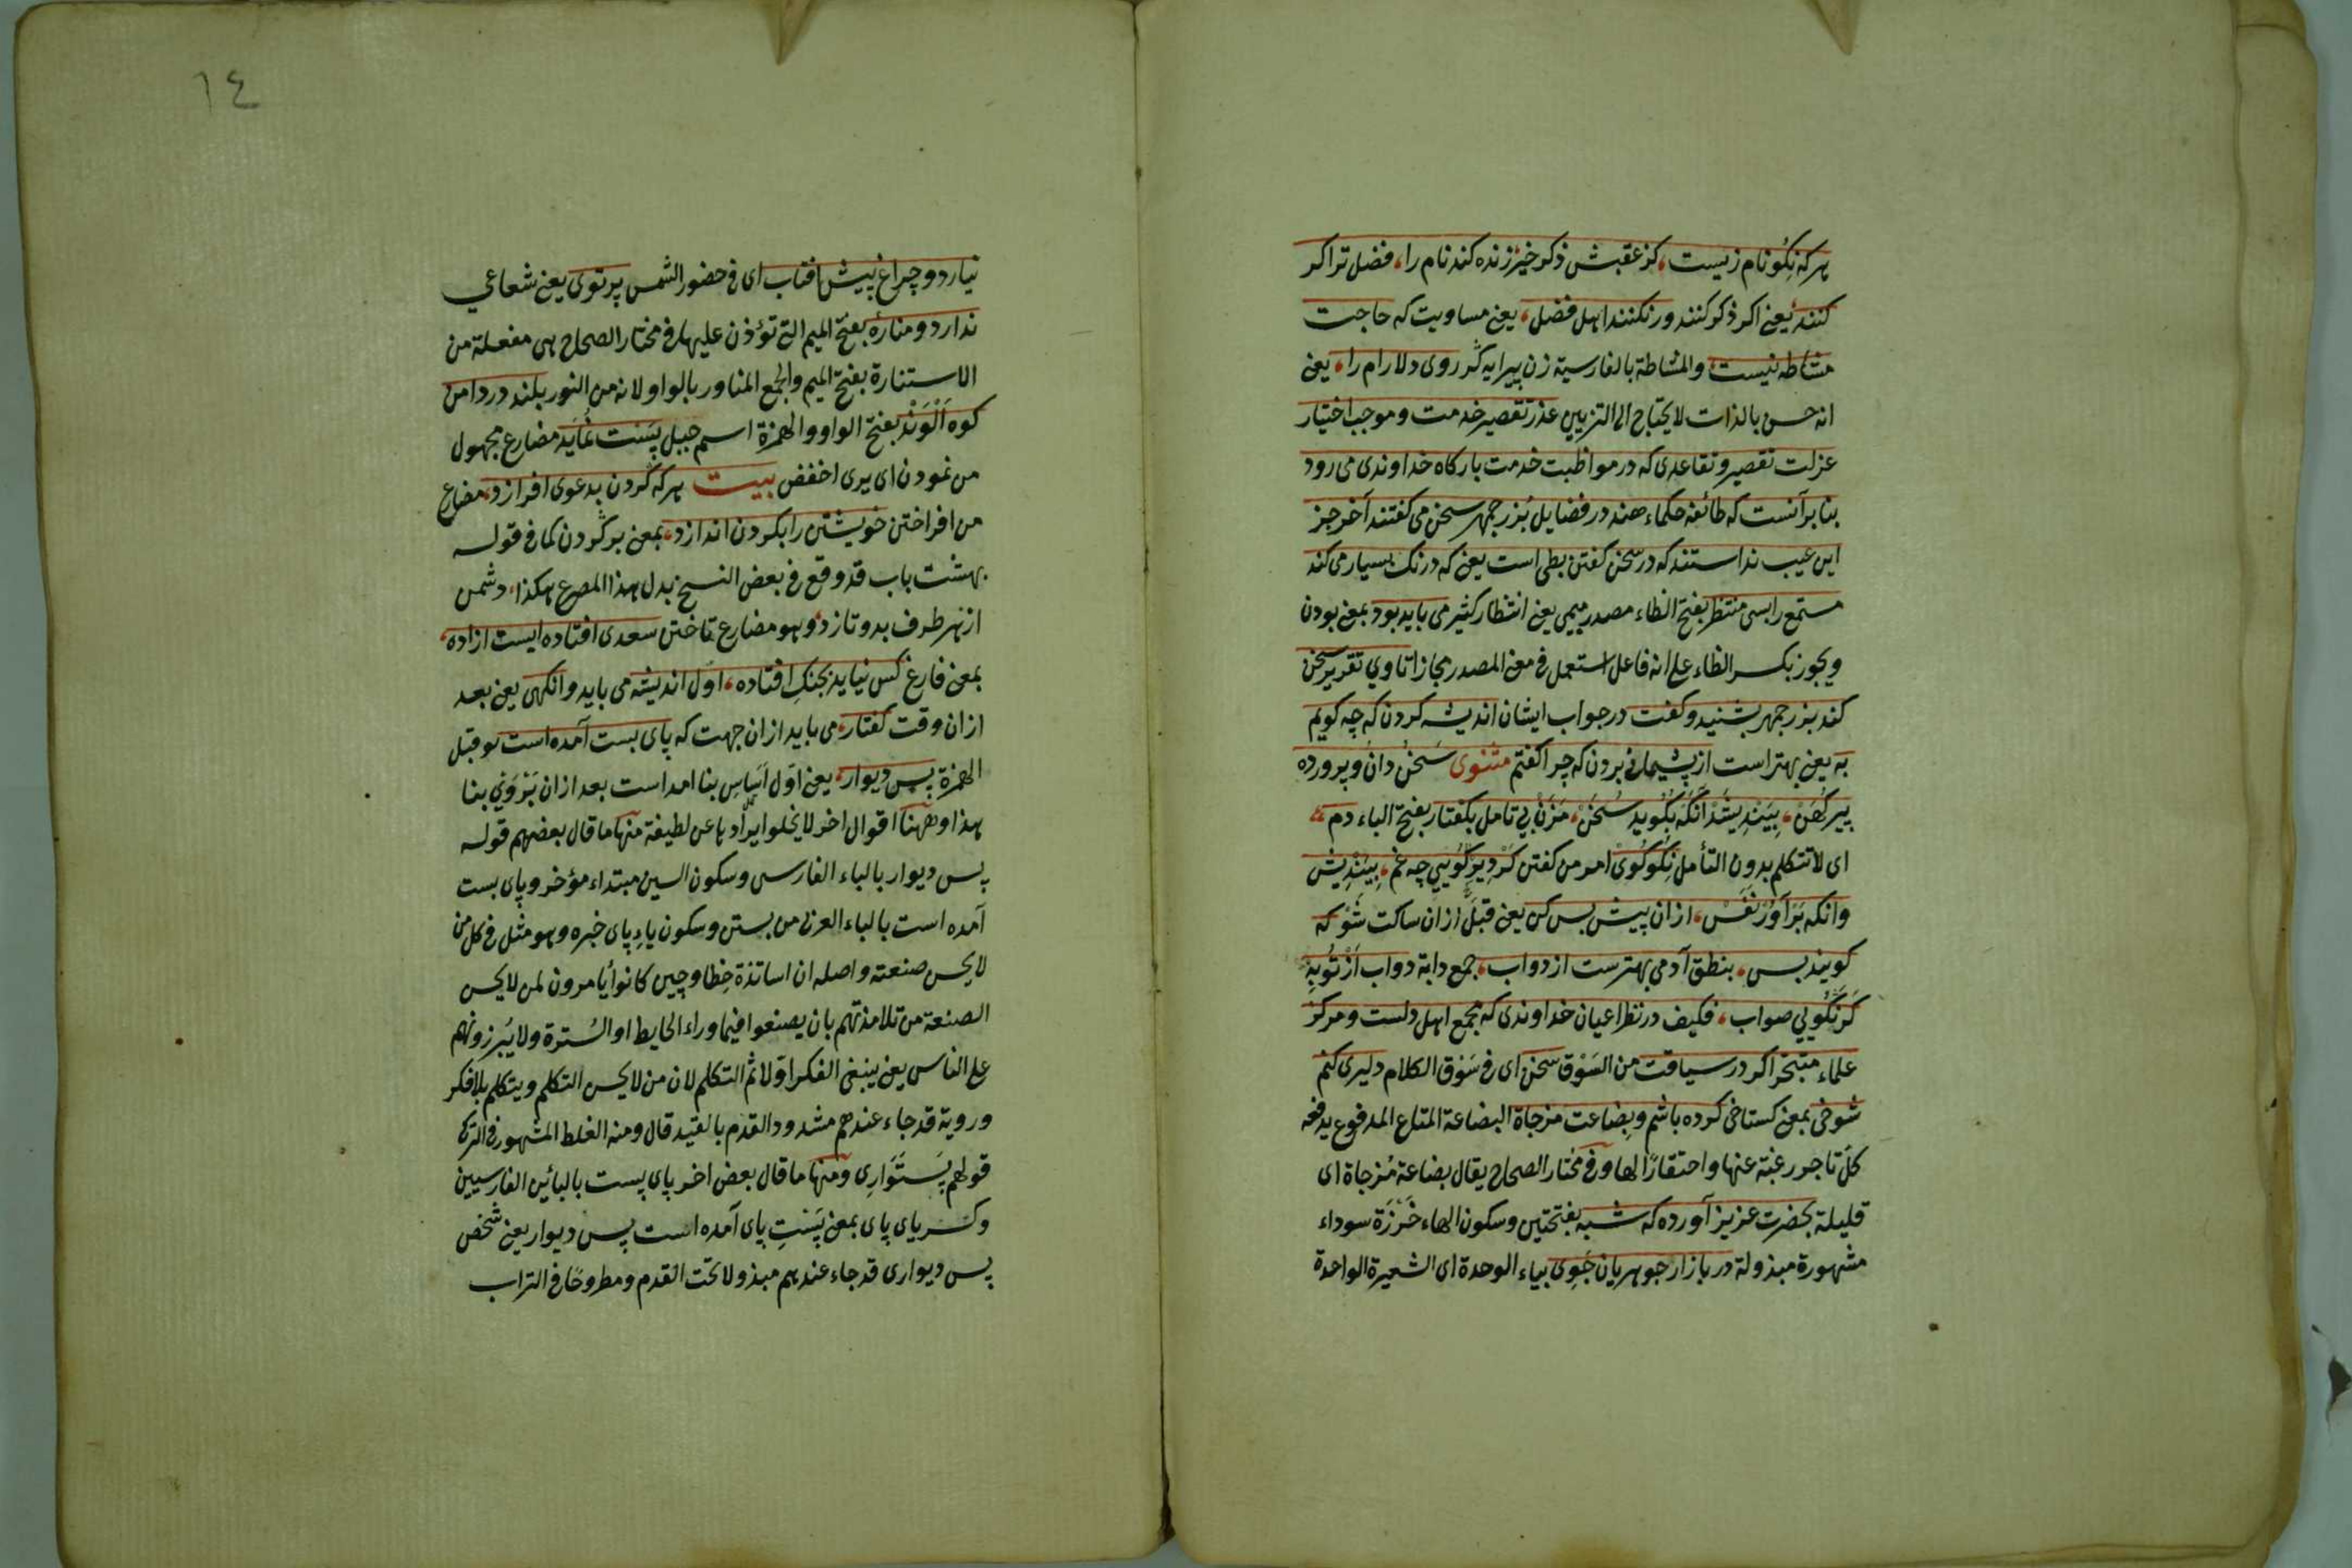 هركه نكو نام زيست، كز عقبش ذكر خير زنده كند نام را، فضل ترا كر
كنند يعنى اكر ذكر كنند ور نكنند اهل فضل، يعنى مساويت كه حاجت
مشاطه نيست والمشاطة بالفارسية زن پيرايه كر روى دلارام را، يعنى
انه حسن بالذات لا يحتاج الى التزيين عذر تقصير خدمت وموجب اختيار
عزلت تقصير وتقاعدى كه در مواظبت خدمت باركاه خداوندى مى رود
بنا برآنست كه طائفه حكماء هند در فضايل بزرجمهر سخن مى كفتند آخر جز
اين عيب ندانستند كه در سخن كفتن بطى است يعنى كه درنك بسيار مى كند
مستمع را بسى منتظر بفتح الظاء مصدر ميمى يعنى انتظار كثير مى بايد بود بمعنى بودن
ويجوز بكسر الظاء على انه فاعل استعمل فى معنى المصدر مجازا تا وي تقرير سخن
كند بزرجمهر بشنيد وكفت در جواب ايشان انديشه كردن كه چه كويم
به يعنى بهتر است از پشيمانى بردن كه چرا كفتم مثنوى سخن دان وپرورده
پير كهن، بينديشد آنكه بكويد سخن، مزن بى تامل بكفتار بفتح الباء دم
اى لا تتكلم بدون التأمل نكو كوى امر من كفتن كر دير كويي چه غم، بينديش
وانكه برآور نفس، ازان پيش بس كن يعنى قبل ازان ساكت شو كه
كويند بس، بنطق آدمى بهترست از دواب، جمع دابة دواب از تو به
كر نكويي صواب، فكيف در نظر اعيان خداوندى كه مجمع اهل دلست ومركز
علماء متبحر اكر در سياقت من السوق سخن اى فى سوق الكلام دليرى كنم
شوخى بمعنى كستاخى كرده باشم وبضاعت مزجاة البضاعة المتاع المدفوع يدفعه
كل تاجر رغبة عنها واحتقارا لها وفى مختار الصحاح يقال بضاعة مزجاة اى
قليلة بحضرت عزيز آورده كه شبه بفتحتين وسكون الهاء خرزة سوداء
مشهورة مبذولة در بازار جوهريان جوى بياء الوحدة اى الشعيرة الواحدة
١٤
نيارد و چراغ پيش افتاب اى فى حضور الشمس پرتوى يعنى شعاعي
ندارد ومناره بفتح الميم التى تؤذن عليها فى مختار الصحاح هى مفعلة من
الاستنارة بفتح الميم والجمع المناور بالواو لانه من النور بلند در دامن
كوه الوند بفتح الواو والهمزة اسم جبل پست نمايد مضارع مجهول
من نمودن اى يرى اخفض بيت هركه كردن بدعوى افرازد، مضارع
من افراختن خويشتن را بكردن اندازد، بمعنى بركردن كما فى قوله
بهشت باب قد وقع فى بعض النسخ بدل هذا المصرع هكذا، دشمن
از هر طرف بدو تازد، وهو مضارع تاختن سعدى افتاده ايست ازاده،
بمعنى فارغ كس نيايد بجنك افتاده، اول انديشه مى بايد وانكهى يعنى بعد
ازان وقت كفتار، مى بايد ازان جهت كه پاى بست آمده است قبل
الهمزة پس ديوار، يعنى اول اساس بنا امداست بعد ازان بنا
هذا وههنا اقوال اخر لا يخلوا ايرادها عن لطيفة منها ما قال بعضهم قوله
پس ديوار بالباء الفارسى وسكون السين مبتداء مؤخر وپاى بست
آمده است بالباء العربى من بستن وسكون ياء پاى خبره وهو مثل فى كل من
لا يحسن صنعته واصله ان اساتذة خطا وچين كانوا يأمرون لمن لا يحسن
الصنعة من تلامذتهم بان يصنعوا فيما وراء الحايط او السترة ولا يبرزونهم
على الناس يعنى ينبغى الفكر اولا ثم التكلم لان من لا يحسن التكلم ويتكلم بلا فكر
وروية قد جاء عندهم مشدود القدم بالقيد قال ومنه الغلط المشهور فى الترك
قولهم پستوارى ومنها ما قال بعض اخر پاى پست بالبائين الفارسيين
وكسر ياى پاى بمعنى پست پاى آمده است پس ديوار يعنى شخص
پس ديوارى قد جاء عندهم مبذولا تحت القدم ومطروحا فى التراب